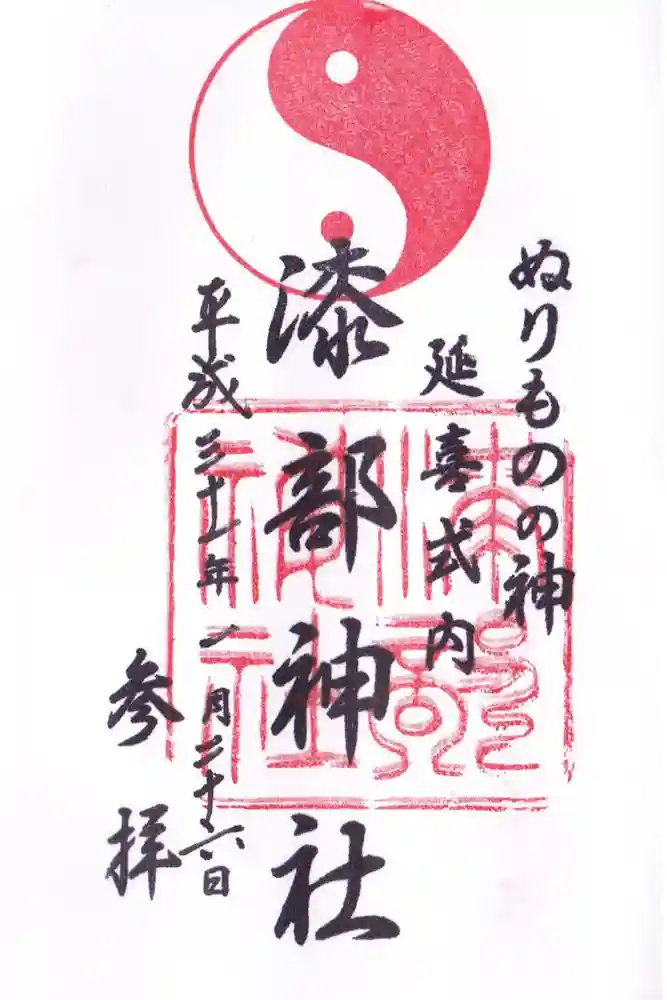 ぬりものの神
延喜式内
漆部神社
平成三十一年一月二十六日
参拝
漆部神社